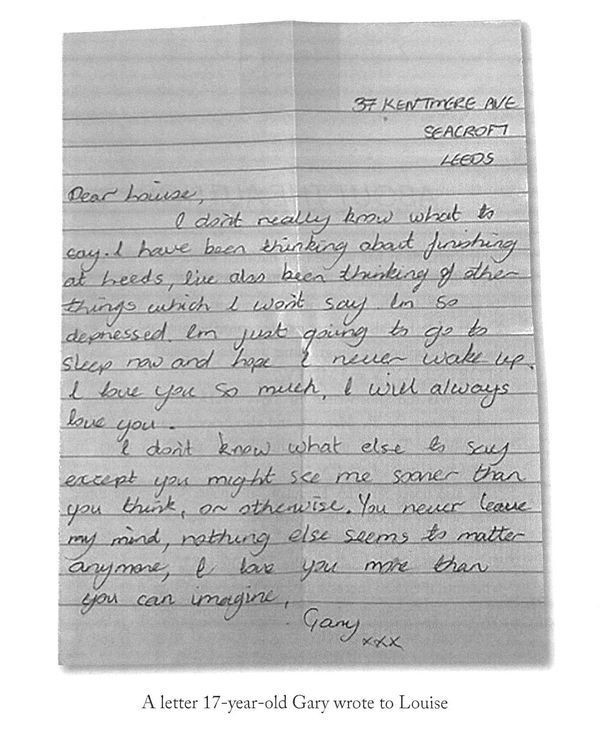 37 KENTMERE AVE
SEACROFT
LEEDS
Dear Louise,
I don't really know what to
say. I have been thinking about finishing
at Leeds, Iive also been thinking of other
things which I won't say. Im so
depressed. Im just going to go to
sleep now and hope I never wake up.
I love you so much, I will always
love you.
I don't know what else to say
except you might see me sooner than
you think, or otherwise. You never leave
my mind, nothing else seems to matter
anymore, I love you more than
you can imagine,
Gary
xxx
A letter 17-year-old Gary wrote to Louise